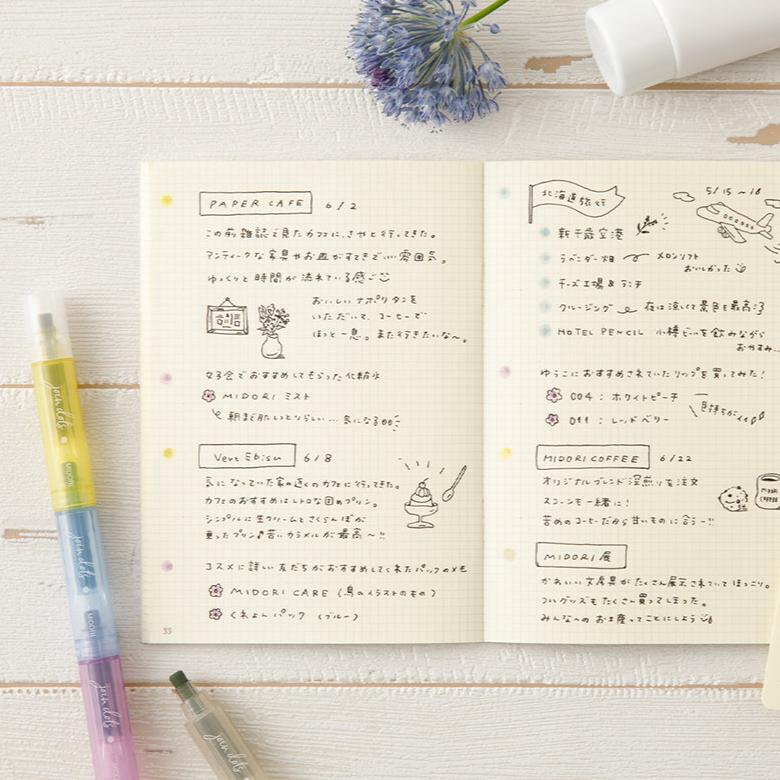 PAPER CAFE 6/2
この前雑誌で見たカフェに、さやと行ってきた。
アンティークな家具やお皿がすてきでいい雰囲気。
ゆっくりと時間が流れている感じ
おいしいナポリタンを
いただいて、コーヒーで
ほっと一息。また行きたいな〜。
女子会でおすすめしてもらった化粧水
MIDORI ミスト
朝まで肌しっとりらしい…気になる
Vert Ebisu 6/8
気になっていた家の近くのカフェに行ってきた。
カフェのおすすめはレトロな固めプリン。
シンプルに生クリームとさくらんぼが
乗ったプリン♪苦いカラメルが最高〜!!
コスメに詳しい友だちがおすすめしてくれたパックのメモ
MIDORI CARE (鳥のイラストのもの)
くれよんパック (ブルー)
55
北海道旅行 5/15〜18
新千歳空港
ラベンダー畑 メロンソフト
おいしかった
チーズ工場 & ランチ
クルージング 夜は涼しくて景色も最高
HOTEL PENCIL 小樽ビールを飲みながら
おやすみ…
ゆうこにおすすめされていたリップを買ってみた!
004 : ホワイトピーチ
011 : レッドベリー
色持ちが
MIDORI COFFEE 6/22
オリジナルブレンド深煎りを注文
スコーンも一緒に!
苦めのコーヒーだから甘いものに合う〜!!
MIDORI COFFEE
MIDORI 展
かわいい文房具がたくさん展示されていてほっこり。
ついグッズもたくさん買ってしまった。
みんなへのお土産ってことにしよう
join dots
MIDORI
join dots
MIDORI
join dots
join dots